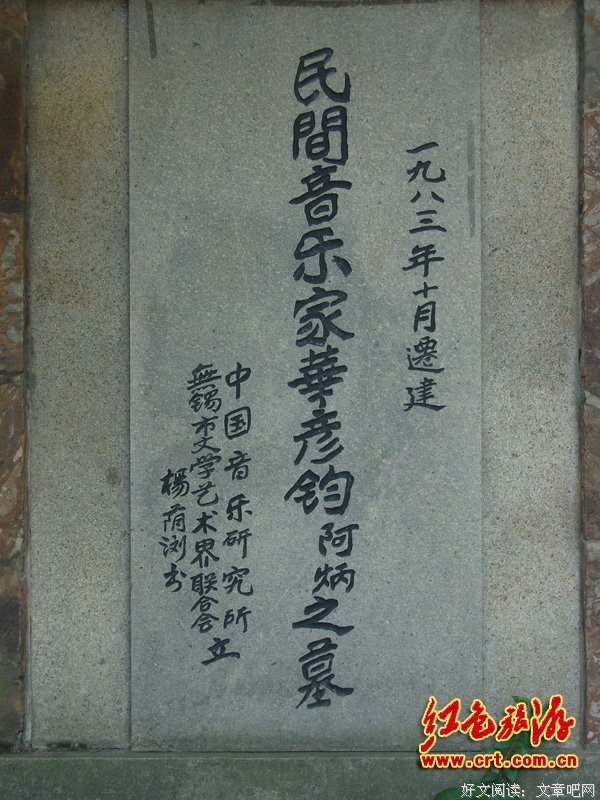 一九八三年十月遷建
民間音乐家華彦鈞阿炳之墓
中国音乐研究所
無錫市文学艺术界联合会 立
楊荫浏书
红色旅游
www.crt.com.cn
好文阅读：文章吧网